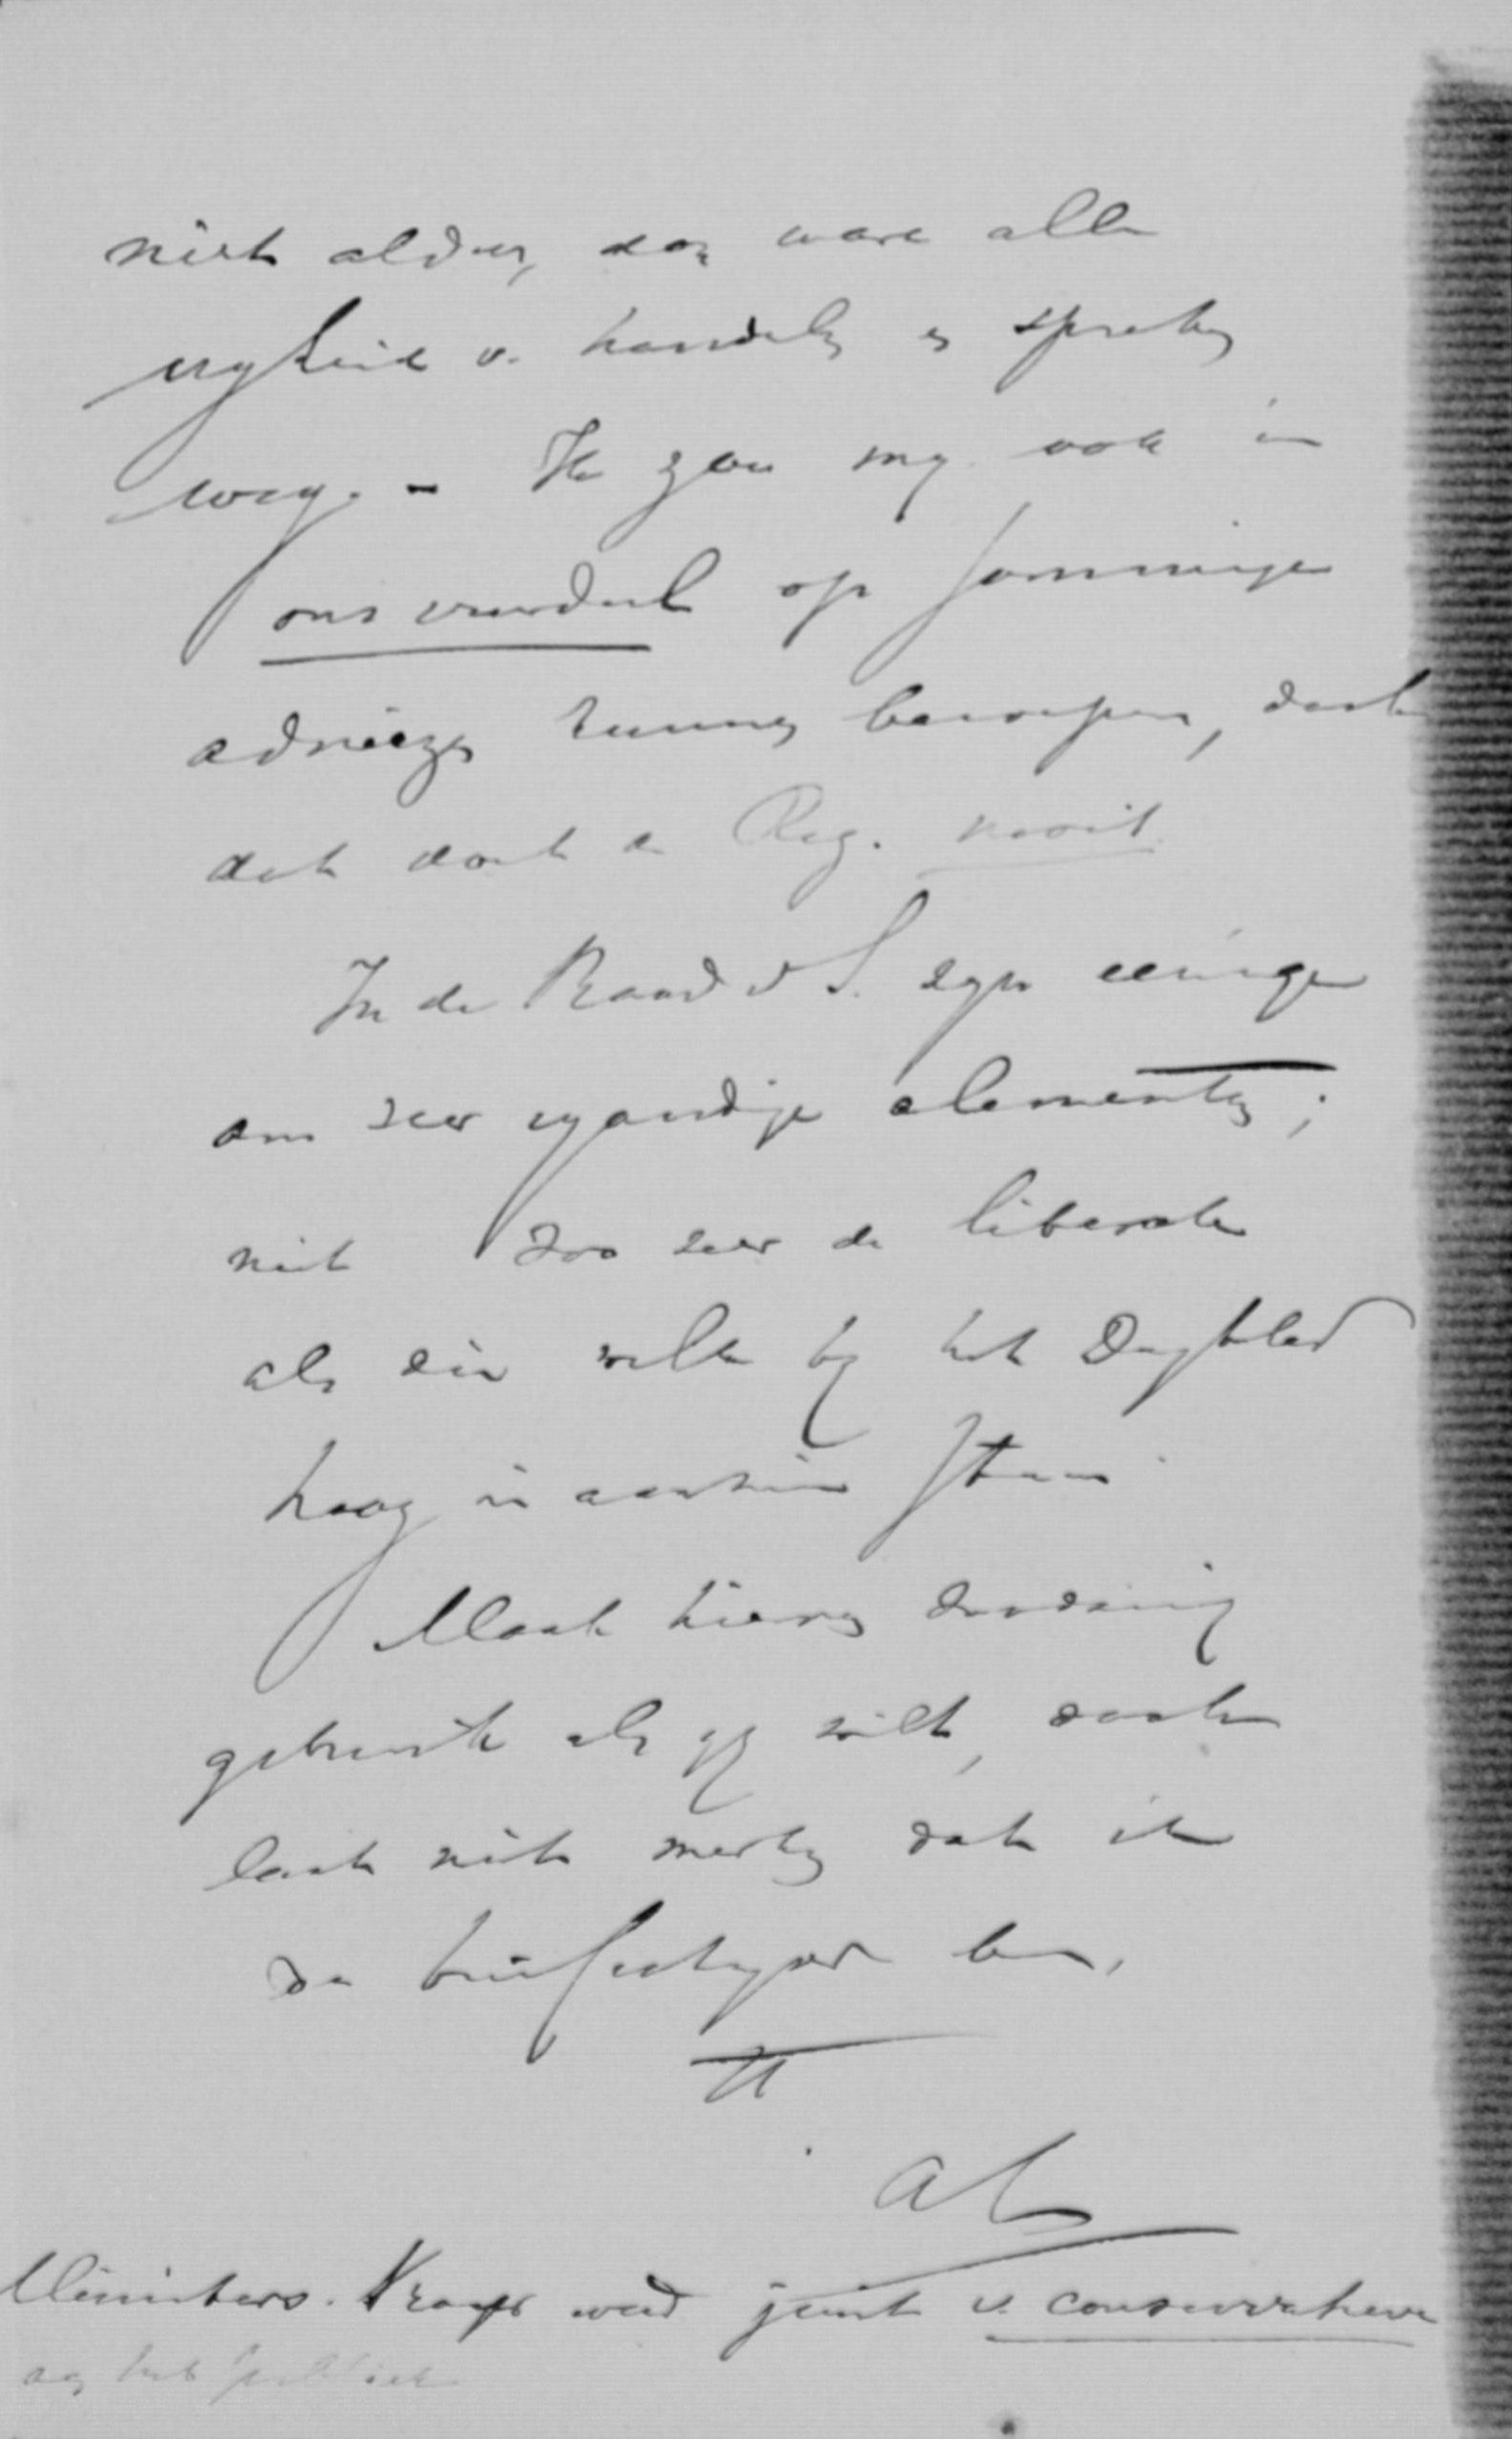 niet aldus, dan ware alle
vryheid v. handelen en spreken
weg. – Ik zou my ook in
ons voordeel op sommige
adviezen kunnen beroepen, doch
dat doet de Reg. nooit
In de Raad v S. zyn eenige
ons zeer vyandige elementen;
niet zoo zeer de liberale
als die welke by het Dagblad
hoog in aanzien staan.
Maak hiervan zoodanig
gebruik als gy wilt, doch
laat niet merken dat ik
de briefschryver ben.
tt
AL
Ministers. werd juist v. conservatieve
het publiek